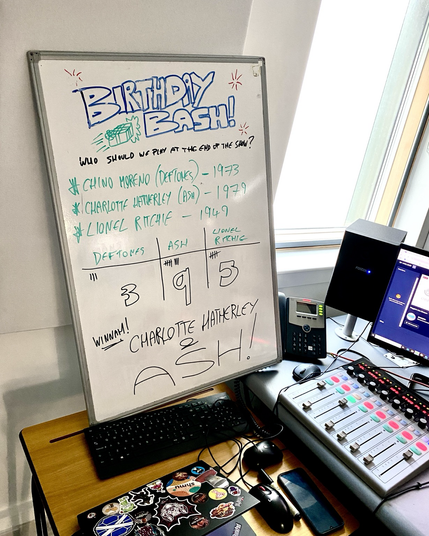 BIRTHDAY
BASH!
WHO SHOULD WE PLAY AT THE END OF THE SHOW?
* CHINO MORENO (DEFTONES) - 1973
* CHARLOTTE HATHERLEY (ASH) - 1979
* LIONEL RITCHIE - 1949
DEFTONES ASH LIONEL RITCHIE
3 9 5
WINNAH! CHARLOTTE HATHERLEY
&
ASH!